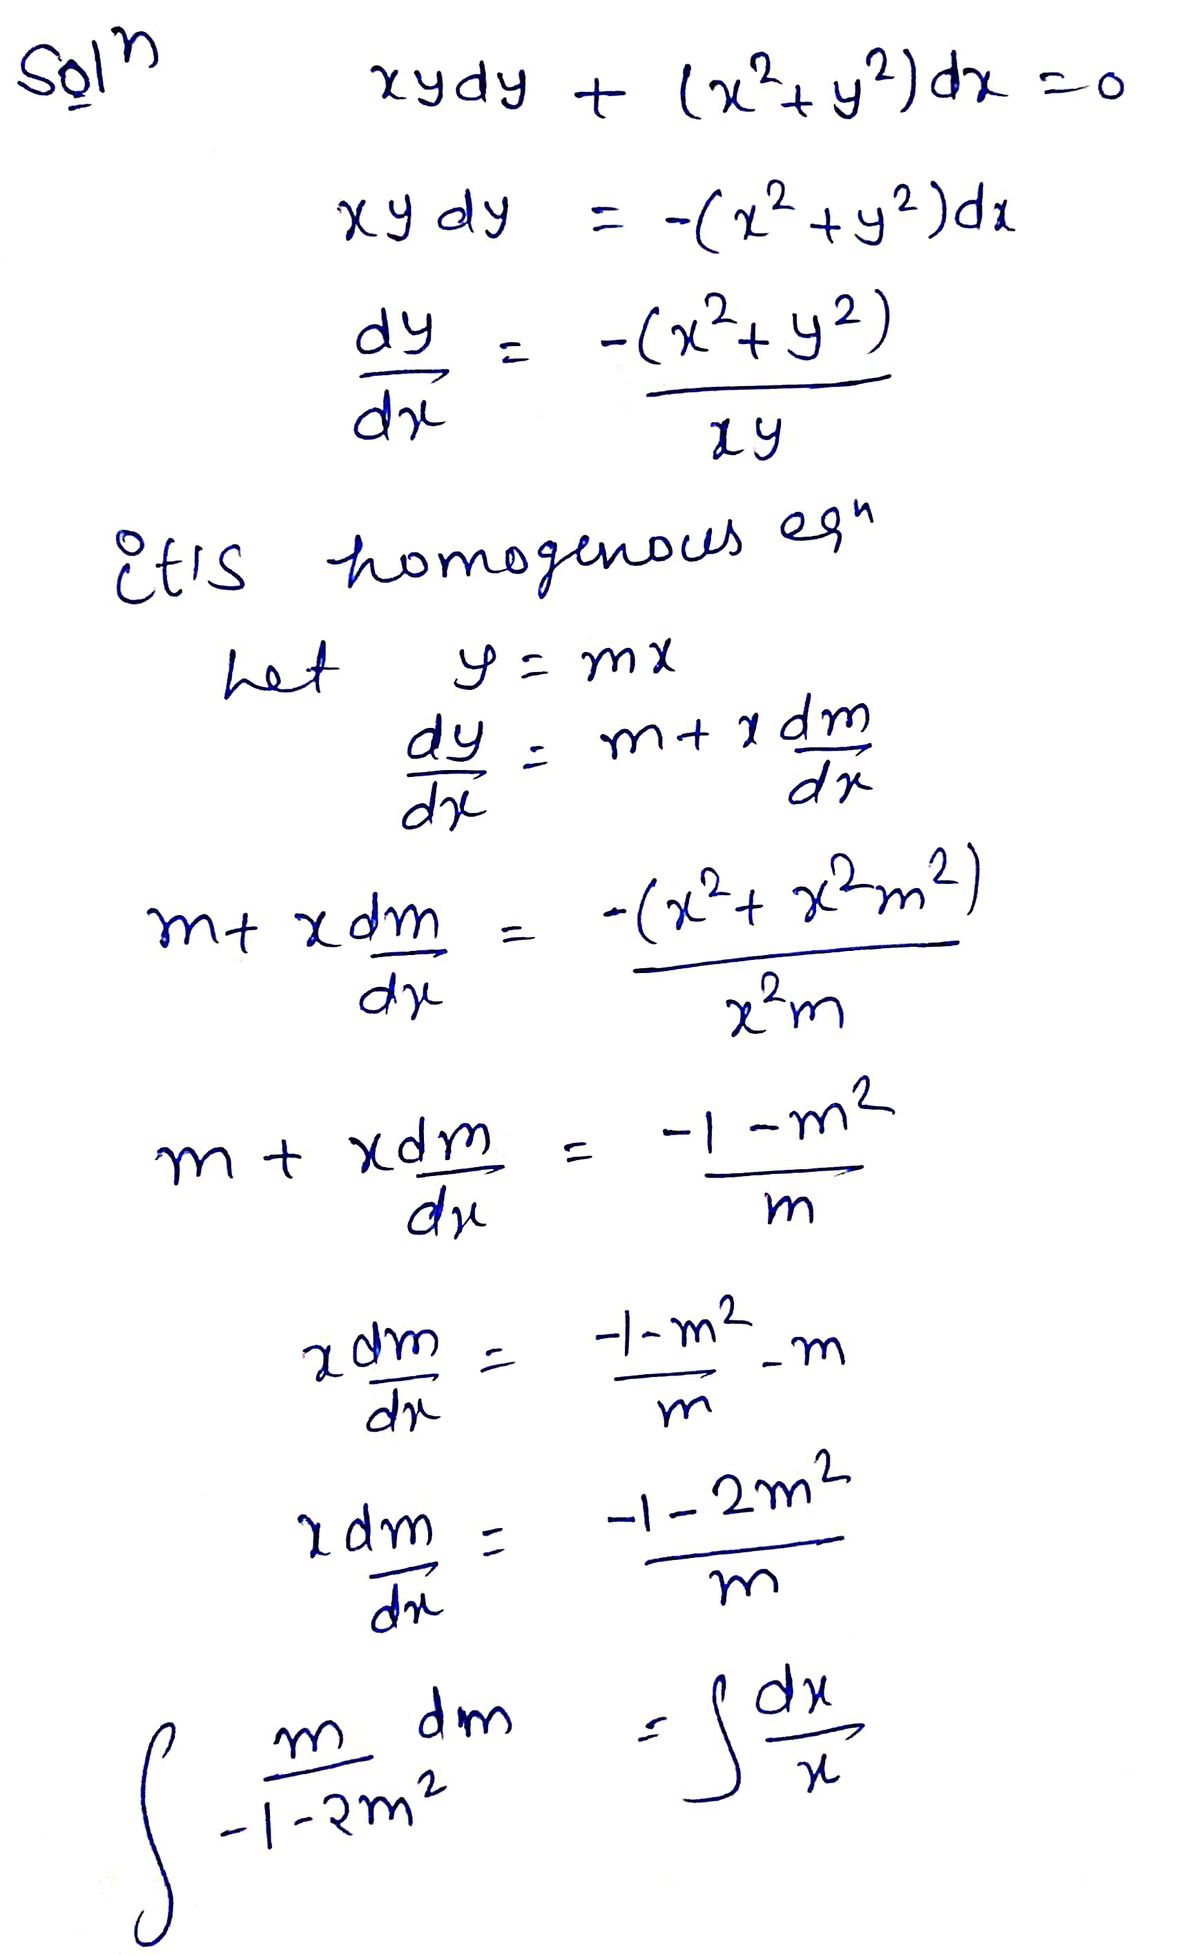 Solⁿ xydy + (x²+y²)dx =0
xydy = -(x²+y²)dx
dy/dx = -(x²+y²)/xy
it is homogenous eqⁿ
Let y = mx
dy/dx = m+ x dm/dx
m+ x dm/dx = -(x²+ x²m²)/x²m
m + x dm/dx = -1 -m²/m
x dm/dx = -1-m²/m -m
x dm/dx = -1-2m²/m
∫ m/-1-2m² dm = ∫ dx/x